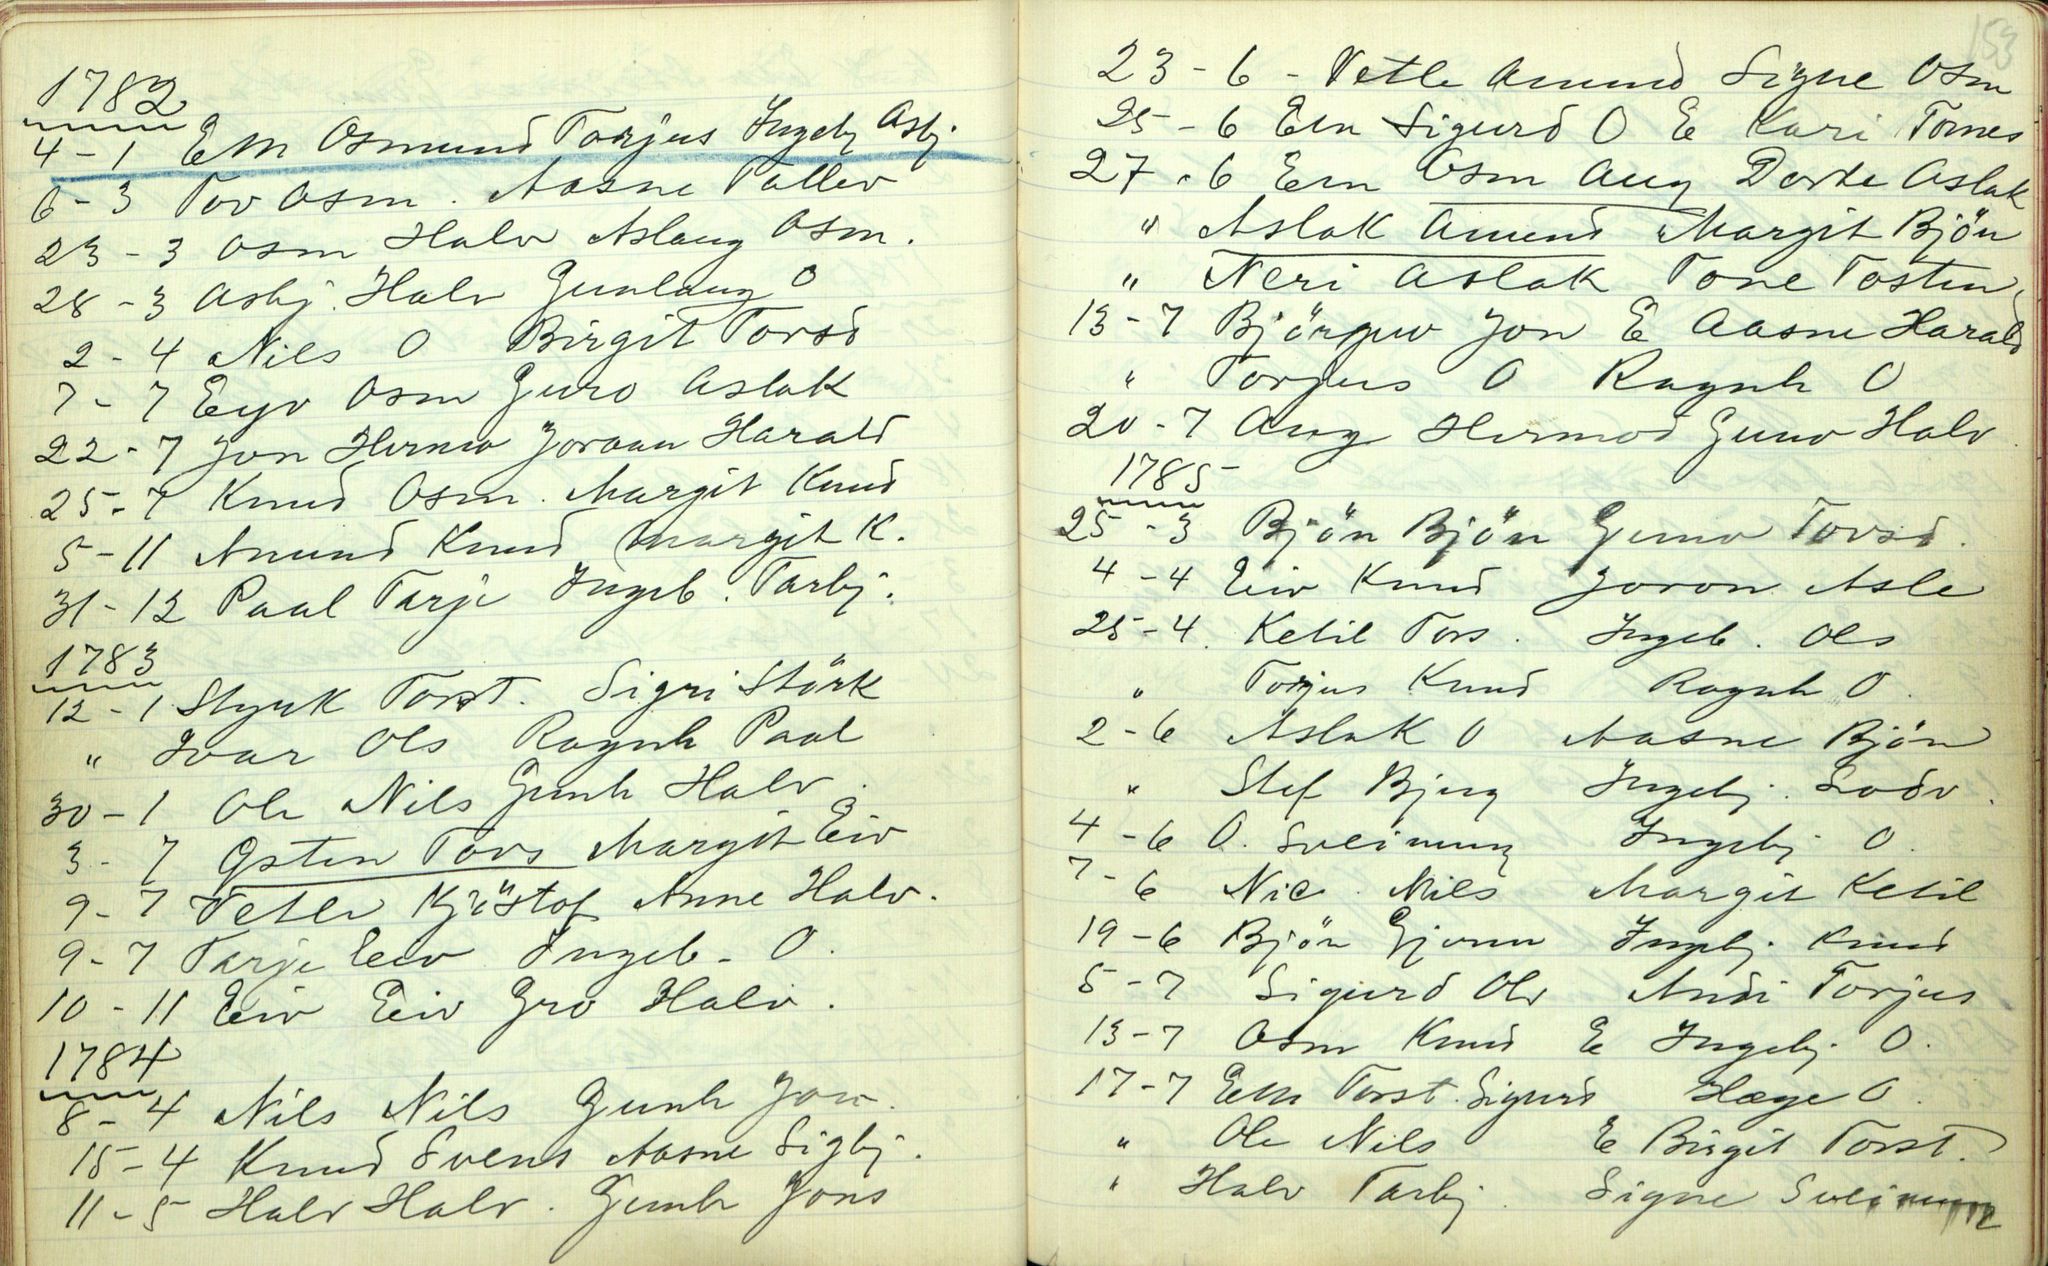 1782
4-1 Em Osmund Torjus Ingebj Asbj
6-3 Tov Osm. Aasne Tallev
23-3 Osm Halv Aslaug Osm.
28-3 Asbj. Halv Gunlaug O
2-4 Nils O Birgit Tovsd
7-7 Eyv Osm Guro Aslak
22-7 Jon Hermo Joraan Harald
25-7 Knud Osm. Margit Knud
5-11 Amund Knud Margit K.
31-12 Paal Tarje Ingeb. Tarbj.
1783
12-1 Styrk Torst. Sigri Störk
" Ivar Ols Ragnh Paal
30-1 Ole Nils Gunh Halv.
3-7 Østen Tovs Margit Eiv
9-7 Vetle Kjöstof Anne Halv.
9-7 Tarje Eiv Ingeb- O.
10-11 Eiv Eiv Gro Halv.
1784
8-4 Nils Nils Gunh Jon.
15-4 Knud Svens Aasne Sigbj.
11-5 Halv Halv. Gunh Jons
153
23-6- Vetle Amund Signe Osm
25-6 Em Sigurd O E Kari Tomes
27-6 Em Osm Aug Dorte Aslak
" Aslak Amund Margit Bjön
" Neri Aslak Tone Tosten
13-7 Björguv Jon E Aasne Harald
" Torjus O Ragnh O
20-7 Aug Hermod Gunv Halv.
1785
25-3 Bjön Bjön Gunv Tovsd.
4-4 Eiv Knud Joron Asle
25-4. Ketil Tors. Ingeb. Ols
" Torjus Knud Ragnh O.
2-6 Aslak O Aasne Bjön
" Stef Bjug Ingebj. Lodv.
4-6 O. Sveinung Ingebj O.
7-6 Nic. Nils Margit Ketil
19-6 Bjön Gjerm Ingebj. Knud
5-7 Sigurd Olv Andi Torjus
13-7 Osm Knud E Ingebj. O.
17-7 Em Torst. Sigurd Hæge O.
" Ole Nils E Birgit Torst.
" Halv Tarbj. Signe Sveinung